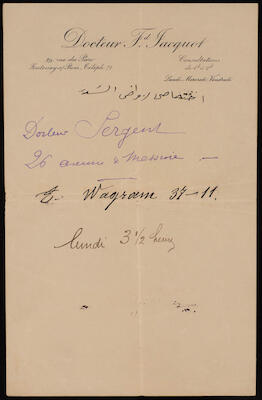 Docteur F.d Jacquot
29, rue du Parc
Fontenay s/ Bois, Téléph. 71
Consultations
Lundi, Mercredi, Vendredi
Docteur Sergent
26 avenue de Messine
Wagram 37-11.
lundi 3 1/2 heures